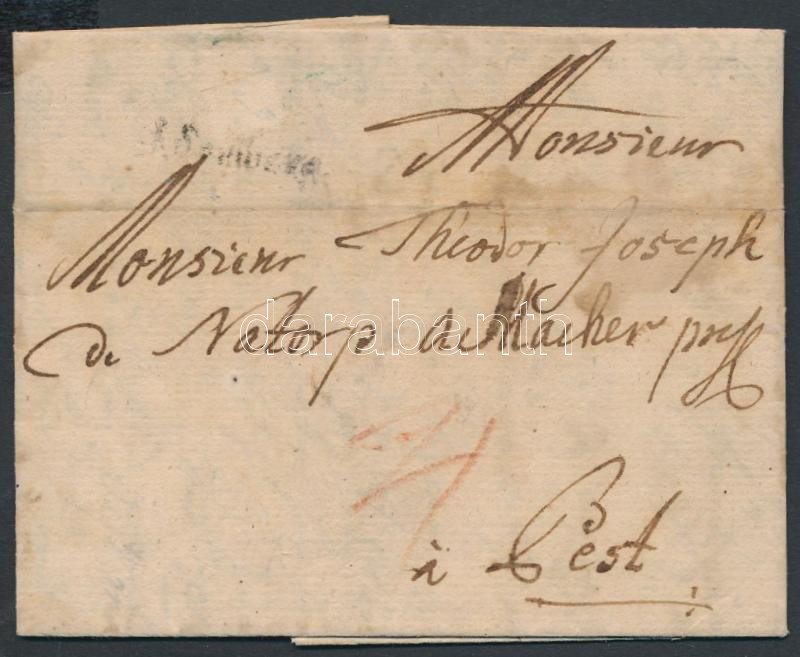 Monsieur
Monsieur Théodor Joseph
de Natorp
à Pest
darabanth